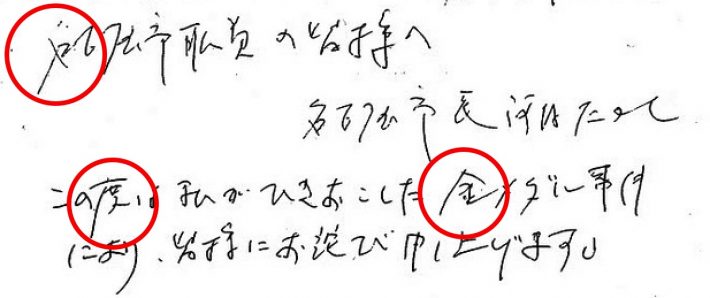 名古屋市職員の皆様へ
名古屋市長 河村たかし
この度は私がひきおこした金メダル事件
により、皆様にお詫び申し上げます。